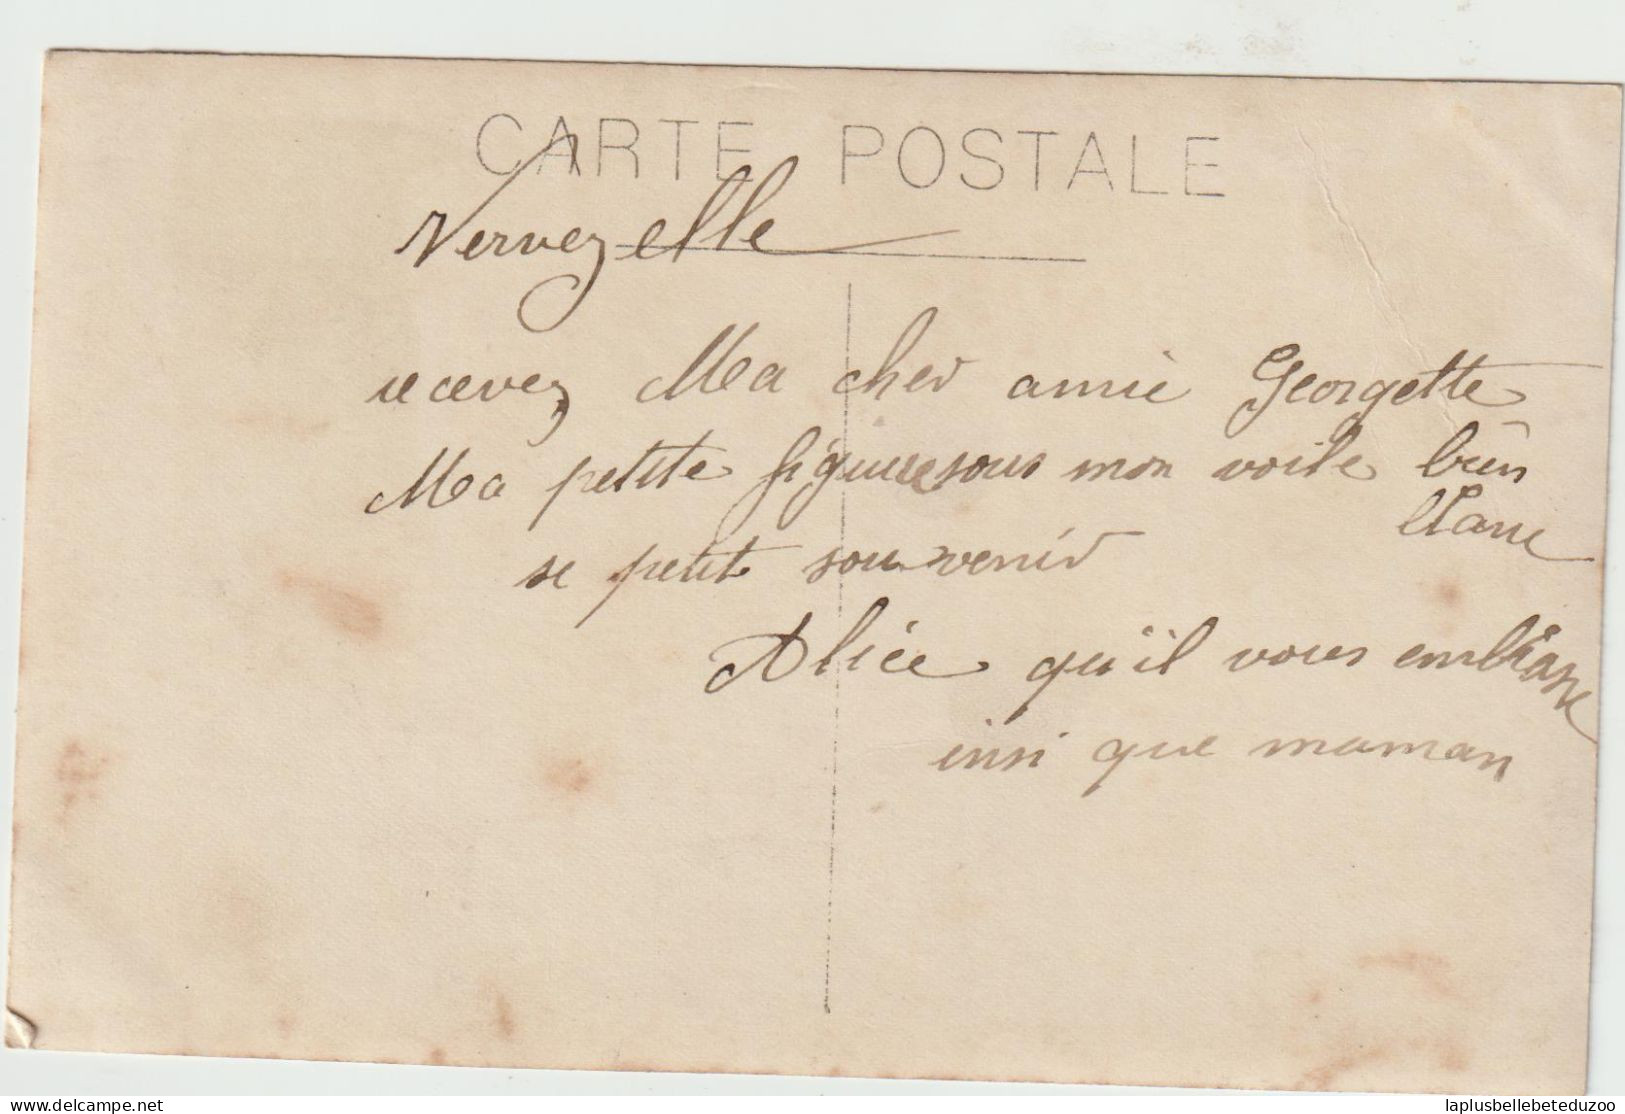 CARTE POSTALE
Vervezelle
recevez Ma cher amie Georgette
Ma petite figure sous mon voile bien
blanc
se petit souvenir
Alice qu'il vous embrasse
insi que maman
laplusbellebeteduzoo